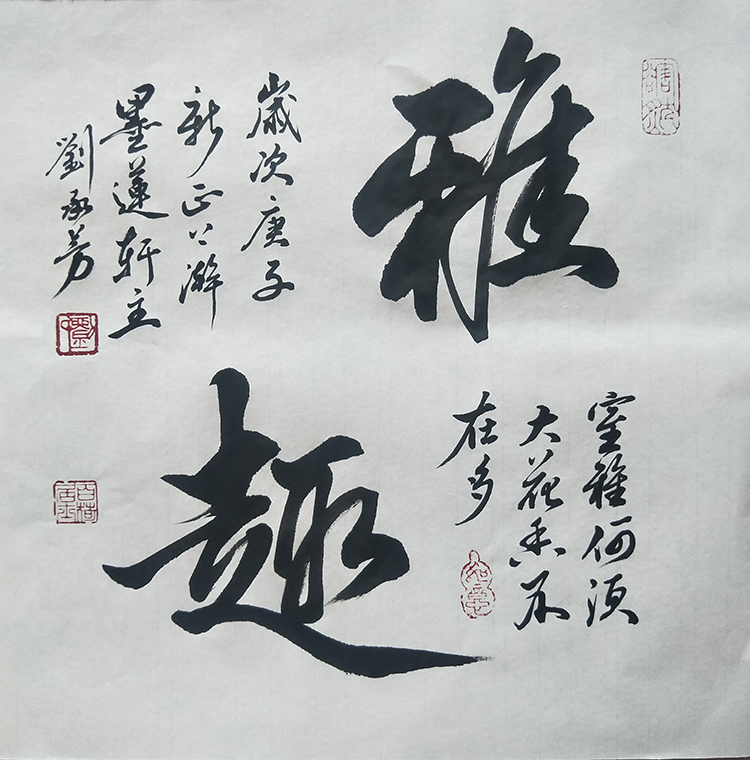 雅
趣
室雅何須
大花香不
在多
歲次庚子
新正上澣
墨蓮軒主
劉承芳
如意